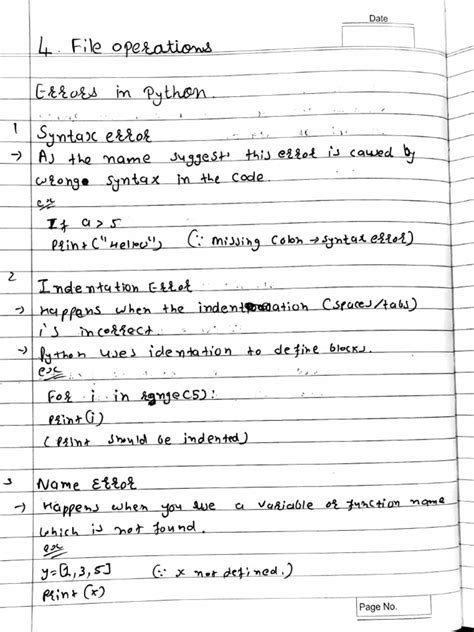 Date
4. File operations
Errors in Python.
1 Syntax error
→ As the name suggest this error is caused by
wrong syntax in the code.
ex
If a > 5
Print ("Hello") (∵ missing colon → syntax error)
2 Indentation Error
→ Happens when the indentation (spaces/tabs)
is incorrect.
→ Python uses identation to define blocks.
ex
For i in range(5):
Print(i)
(Print should be indented)
3 Name Error
→ Happens when you use a variable or function name
which is not found.
ex
y=[2,3,5] (∵ x not defined.)
Print (x)
Page No.